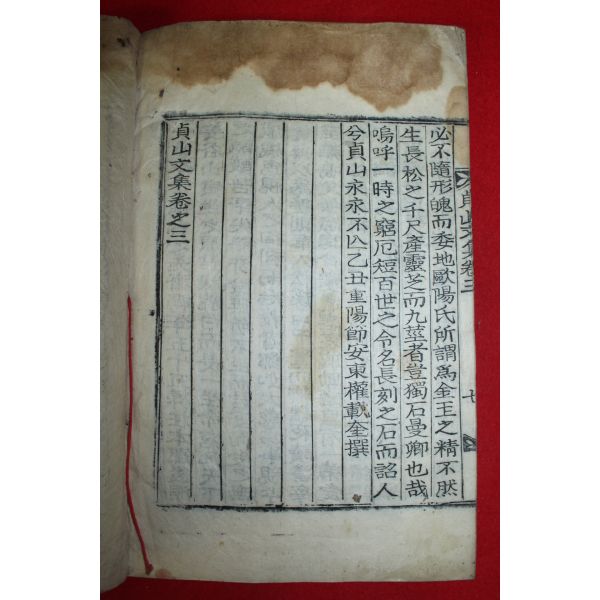 貞山文集卷三
必不隨形魄而委地歐陽氏所謂爲金玉之精不然
生長松之千尺產靈芝而九莖者豈獨石曼卿也哉
嗚呼一時之窮厄短百世之令名長刻之石而詔人
兮貞山永永不㒰乙丑重陽節安東權載奎撰
貞山文集卷之三